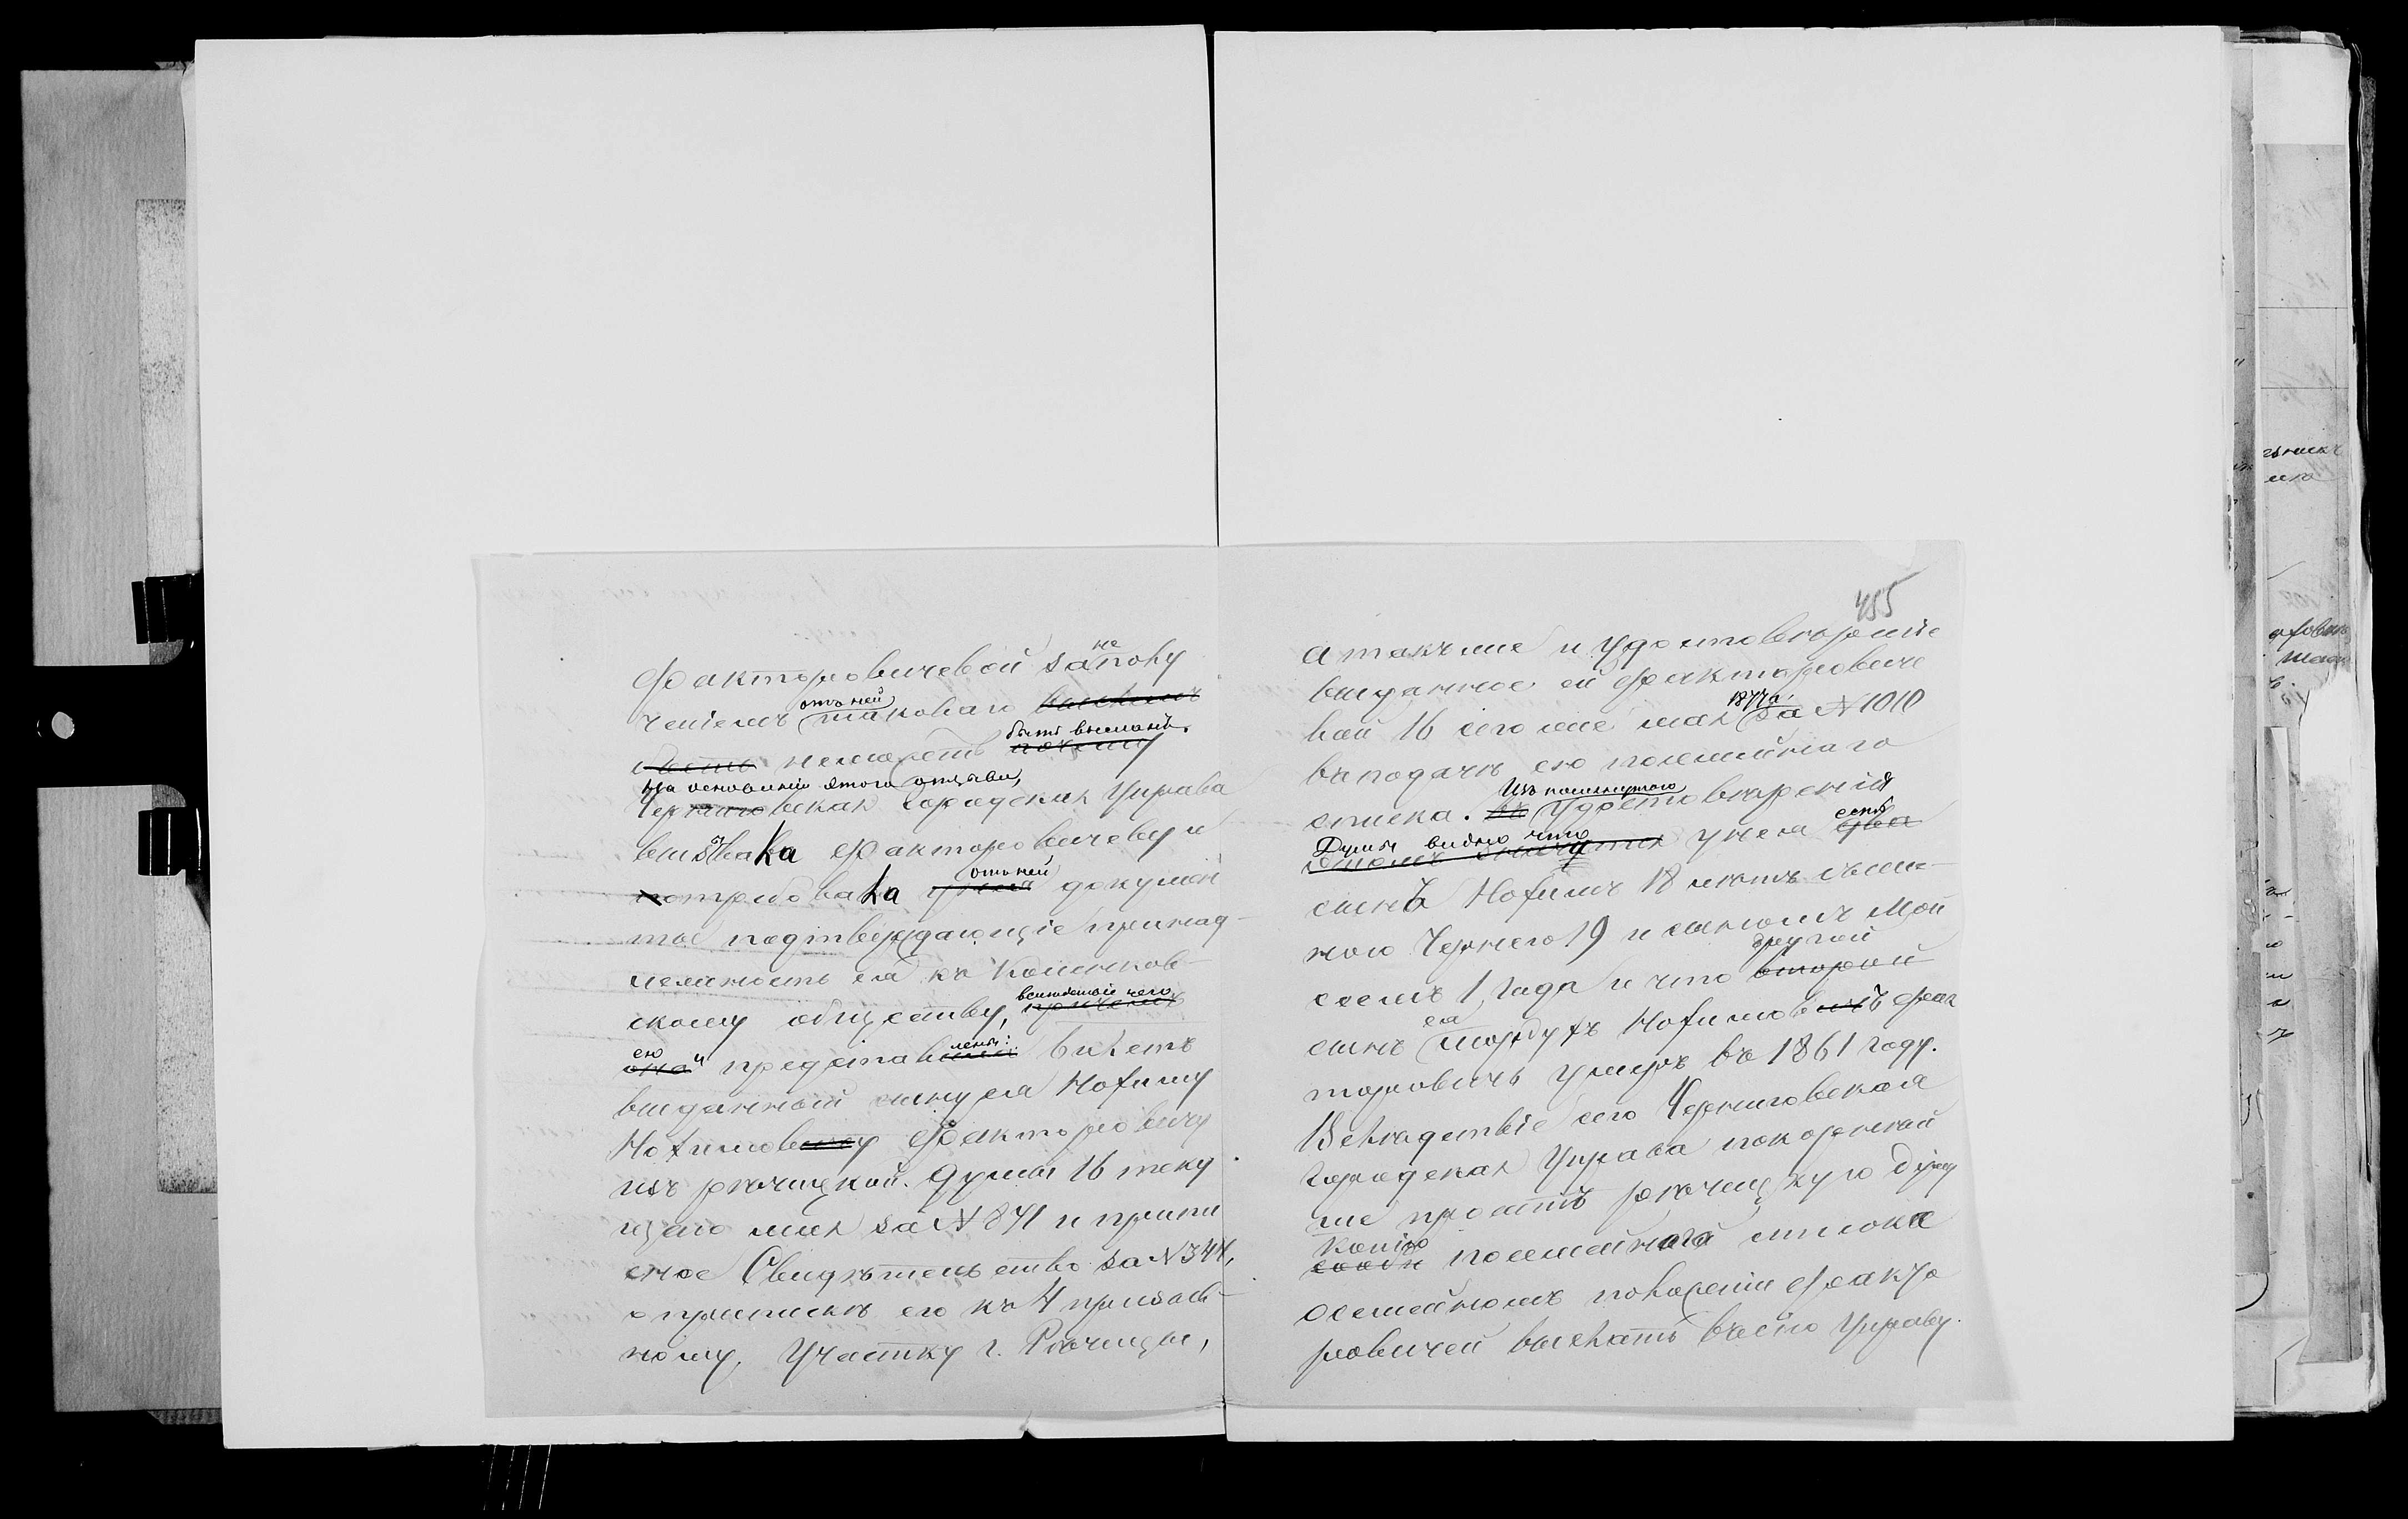 Факторовичевой за не полу
ченіемъ отъ ней таковаго
неможетъ быть высланъ.
На основаніи этого отзыва,
Черниговская Городская Управа
вызвала Факторовичеву и
потребовала отъ ней докумен
ты подтверждающіе принад-
лежность ея къ Коминков-
скому обществу, вслѣдствіе чего
ею и представленъ: билетъ
выданный сыну ея Нохиму
Нохимову Факторовичу
изъ рѣчицкой Думы 16 теку
щаго мая за № 841 и припи
сное Свидѣтельство за № 344,
о припискѣ его къ 4 призыв-
ному участку г. Рѣчицы,
455
а такъ же и удостовѣреніе
выданное ей Факторовиче
вой 16 сего же мая 1877 г. за № 1010
въ подачѣ ею посемейнаго
списка. Изъ помянутого удостовѣренія
Думы видно что у нея есть
сынъ Нохимъ 18 лѣтъ съ же-
ною Чернею 19 и сыномъ Мой
сеемъ 1 года и что другой
сынъ ея Мордухъ Нохимовъ Фак
торовичъ умеръ въ 1861 году.
Вслѣдствіе сего Черниговская
Городская Управа покорнѣй
ше проситъ рѣчицкую Думу
копію посемейнаго списка
о семейномъ положеніи Факто
ровичей выслать въ сію Управу.